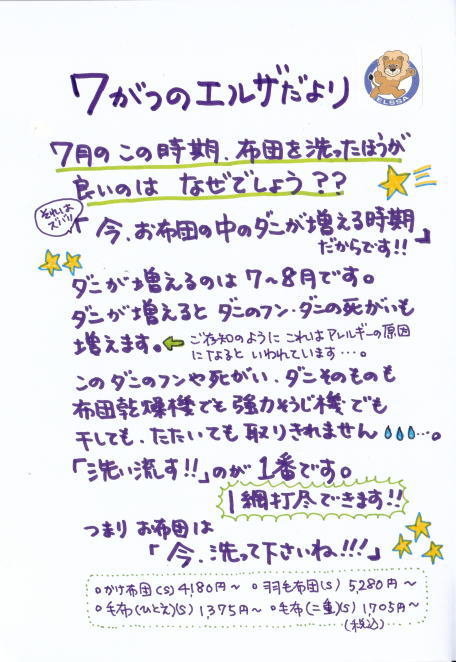 7がつのエルザだより
ELSSA
7月のこの時期、布団を洗ったほうが
良いのは なぜでしょう??
それはズバリ
「今、お布団の中のダニが増える時期
だからです!!」
ダニが増えるのは7〜8月です。
ダニが増えると ダニのフン・ダニの死がいも
増えます。
ご存知のように これはアレルギーの原因
になると いわれています…。
このダニのフンや死がい、ダニそのものも
布団乾燥機でも強力そうじ機でも
干しても、たたいても取りきれません…。
「洗い流す!!」のが1番です。
1網打尽できます!!
つまり お布団は
「今、洗って下さいね!!!」
○かけ布団(S) 4,180円〜 ○羽毛布団(S) 5,280円〜
○毛布(ひとえ)(S) 1,375円〜 ○毛布(二重)(S) 1,705円〜
(税込)